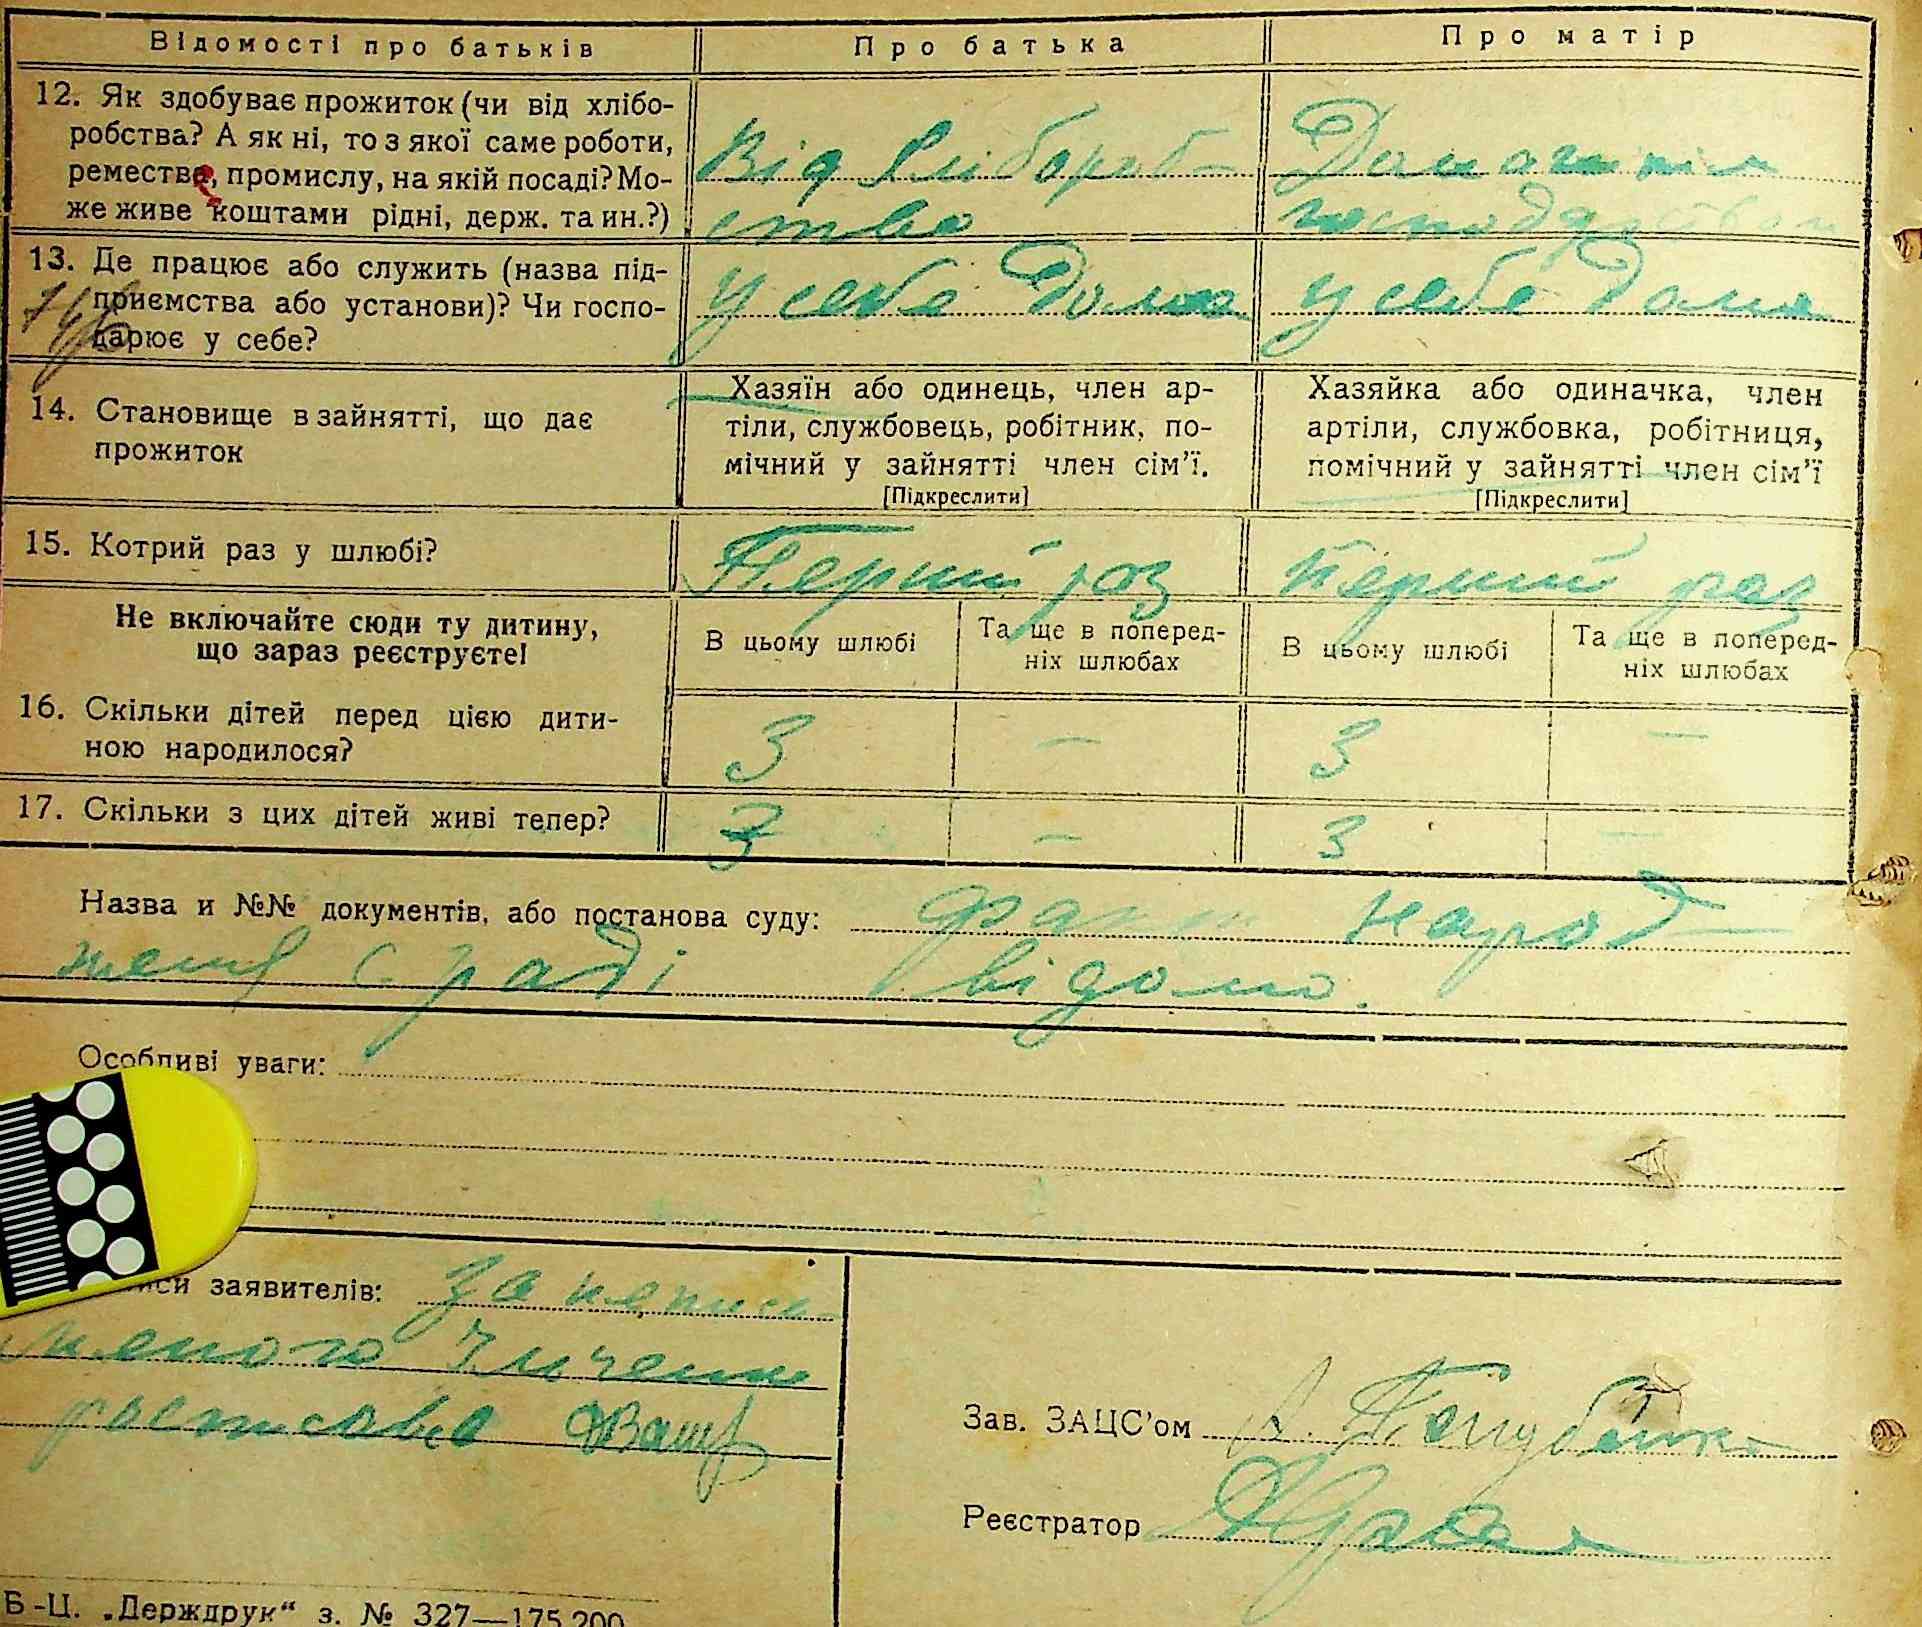 Відомості про батьків
Про батька
Про матір
12. Як здобуває прожиток (чи від хлібо-
робства? А як ні, то з якої саме роботи,
ремества, промислу, на якій посаді? Мо-
же живе коштами рідні, держ. та ин.?)
Від хліборob-
ства
Домашнім
господарством
13. Де працює або служить (назва під-
приємства або установи)? Чи госпо-
дарює у себе?
у себе дома
у себе дома
14. Становище в зайнятті, що дає
прожиток
Хазяїн або одинець, член ар-
тіли, службовець, робітник, по-
мічний у зайнятті член сім'ї.
[Підкреслити]
Хазяйка або одиначка, член
артіли, службовка, робітниця,
помічний у зайнятті член сім'ї
[Підкреслити]
15. Котрий раз у шлюбі?
Перший раз
Перший раз
Не включайте сюди ту дитину,
що зараз реєструєте!
В цьому шлюбі
Та ще в поперед-
ніх шлюбах
В цьому шлюбі
Та ще в поперед-
ніх шлюбах
16. Скільки дітей перед цією дити-
ною народилося?
3 – 3 –
17. Скільки з цих дітей живі тепер?
3 – 3 –
Назва и №№ документів, або постанова суду: факт народ-
женя с раді відомо.
Особливі уваги:
заявителів: за непись-
меного
росписався
Зав. ЗАЦС'ом
Реєстратор
Б-Ц. „Держдрук“ з. № 327—175.200